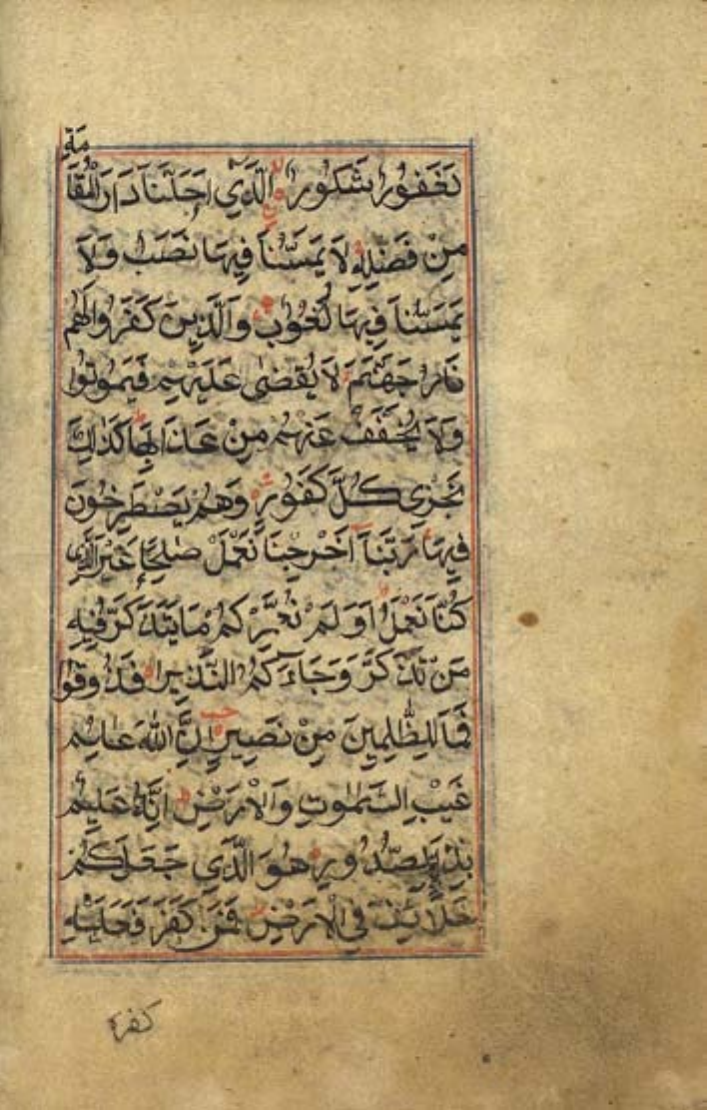 لَغَفُورٌ شَكُورٌ الَّذِي اَحَلَّنَا دَارَ الْمُقَا
مَةِ
مِنْ فَضْلِهِ لَا يَمَسُّنَا فِيهَا نَصَبٌ وَلَا
يَمَسُّنَا فِيهَا لُغُوبٌ وَالَّذِينَ كَفَرُوا لَهُمْ
نَارُ جَهَنَّمَ لَا يُقْضَى عَلَيْهِمْ فَيَمُوتُوا
وَلَا يُخَفَّفُ عَنْهُمْ مِنْ عَذَابِهَا كَذٰلِكَ
نَجْزِي كُلَّ كَفُورٍ وَهُمْ يَصْطَرِخُونَ
فِيهَا رَبَّنَا اَخْرِجْنَا نَعْمَلْ صٰلِحًا غَيْرَ الَّذِي
كُنَّا نَعْمَلُ اَوَلَمْ نُعَمِّرْكُمْ مَا يَتَذَكَّرُ فِيهِ
مَنْ تَذَكَّرَ وَجَاءَكُمُ النَّذِيرُ فَذُوقُوا
فَمَا لِلظّٰلِمِينَ مِنْ نَصِيرٍ اِنَّ اللّٰهَ عَالِمُ
غَيْبِ السَّمٰوٰتِ وَالْاَرْضِ اِنَّهُ عَلِيمٌ
بِذَاتِ الصُّدُورِ هُوَ الَّذِي جَعَلَكُمْ
خَلَائِفَ فِي الْاَرْضِ فَمَنْ كَفَرَ فَعَلَيْهِ
كفره